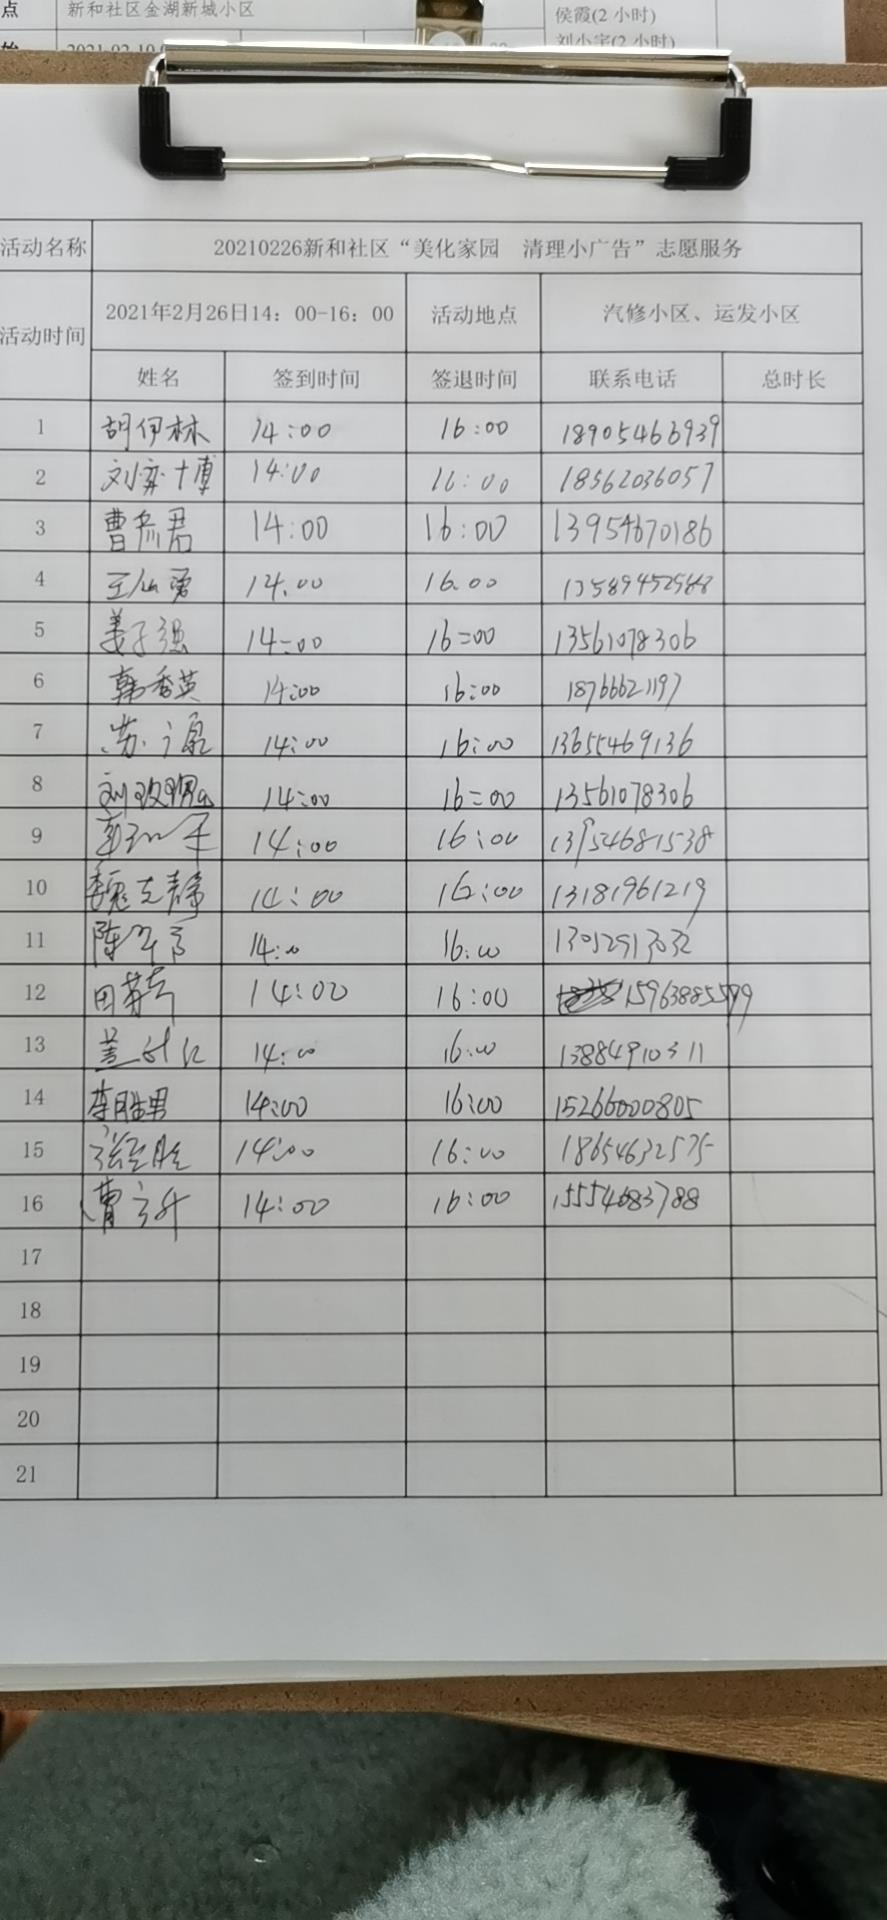 点 新和社区金湖新城小区 侯霞(2 小时)
始 刘小宇(2 小时)
活动名称 20210226新和社区“美化家园 清理小广告”志愿服务
活动时间 2021年2月26日14：00-16：00 活动地点 汽修小区、运发小区
姓名 签到时间 签退时间 联系电话 总时长
1 胡伊林 14:00 16:00 18905466939
2 刘奕博 14:00 16:00 18562036057
3 曹彦君 14:00 16:00 13954670186
4 14.00 16.00
5 姜子强 14=00 16=00 13561078306
6 韩香英 14:00 16:00 18766621197
7 苏广泉 14:00 16:00 13655469136
8 14:00 16=00 13561078306
9 14:00 16:00 13954681538
10 魏克静 14:00 16:00 13181961219
11 14:00 16:00
12 14:00 16:00 15963885599
13 14:00 16:00 13884910311
14 李胜男 14:00 16:00 15266000805
15 14:00 16:00 18654632575
16 14:00 16:00 15554683788
17
18
19
20
21